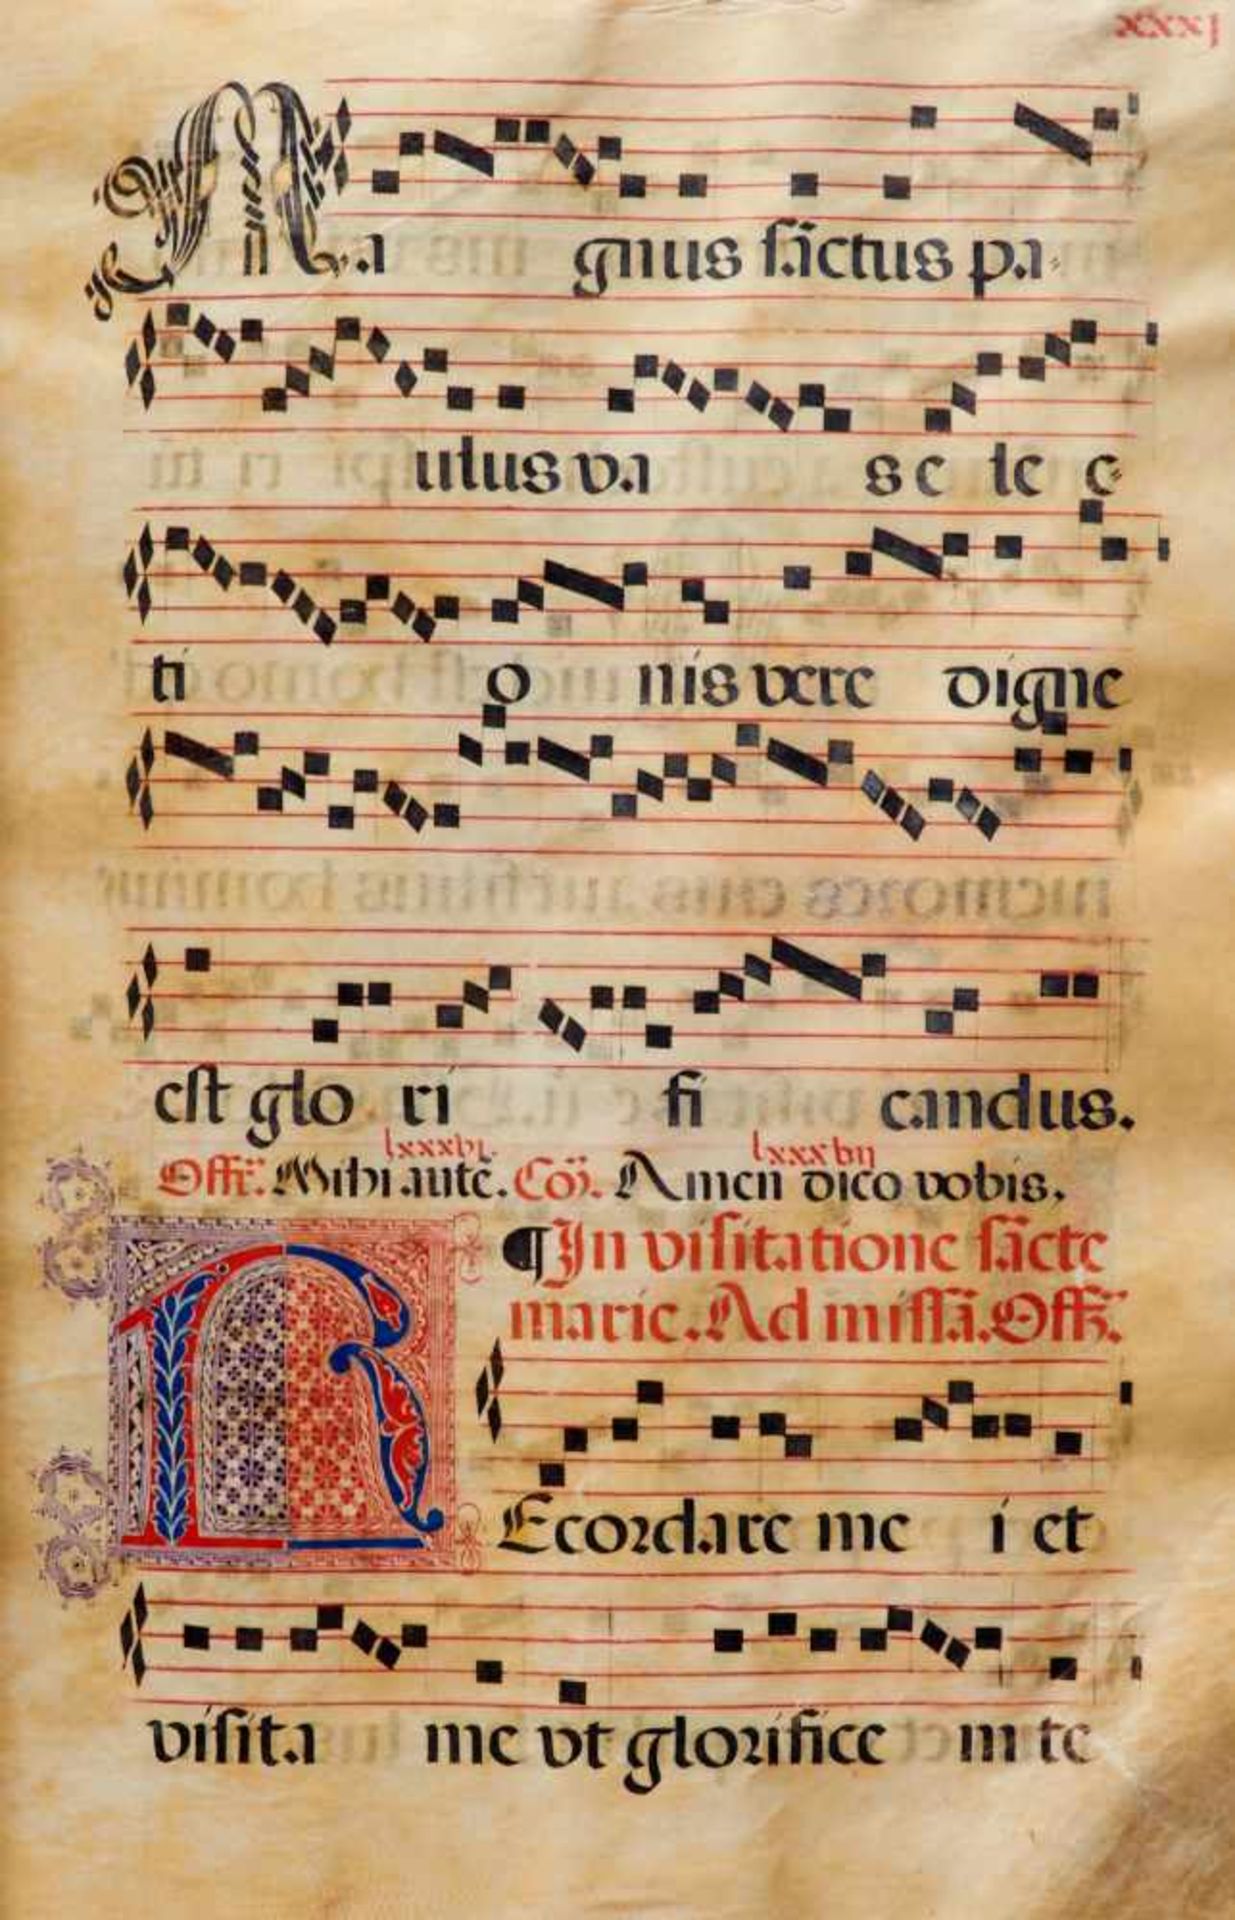 xxxj
Ma gnus sāctus pa-
ulus va s e le c-
ti o nis vere digne
est glo ri fi candus.
lxxxvi. lxxxvii
Off̄. Mihi autē. Cōi. Amen dico vobis.
¶ In visitatione sācte
marie. Ad missā. Off̄.
REcordare me i et
visita me vt glorifice m te